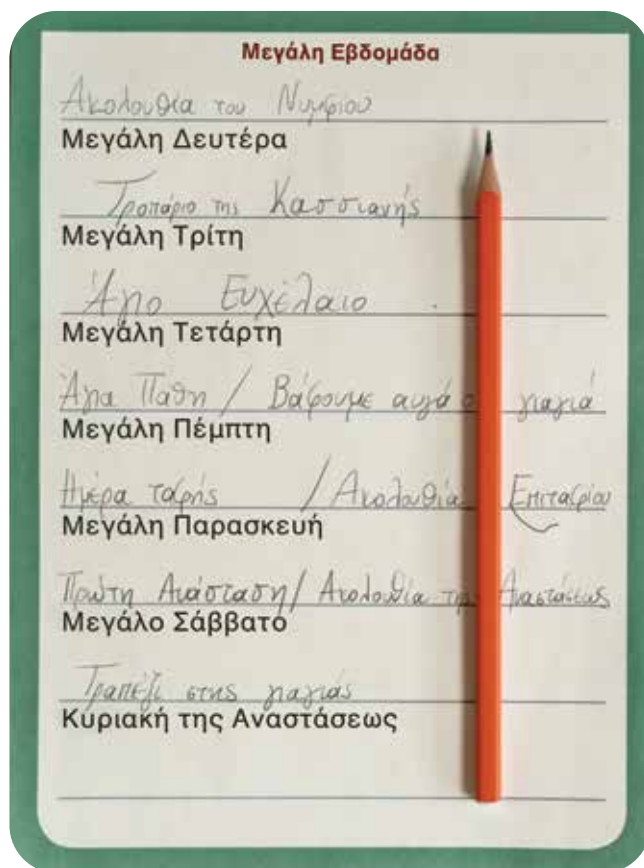 Μεγάλη Εβδομάδα
Ακολουθία του Νυμφίου
Μεγάλη Δευτέρα
Τροπάριο της Κασσιανής
Μεγάλη Τρίτη
Άγιο Ευχέλαιο
Μεγάλη Τετάρτη
Άγια Πάθη / Βάφουμε αυγά γιαγιά
Μεγάλη Πέμπτη
Ημέρα ταφής / Ακολουθία Επιταφίου
Μεγάλη Παρασκευή
Πρώτη Ανάσταση / Ακολουθία της Αναστάσεως
Μεγάλο Σάββατο
Τραπέζι στης γιαγιάς
Κυριακή της Αναστάσεως